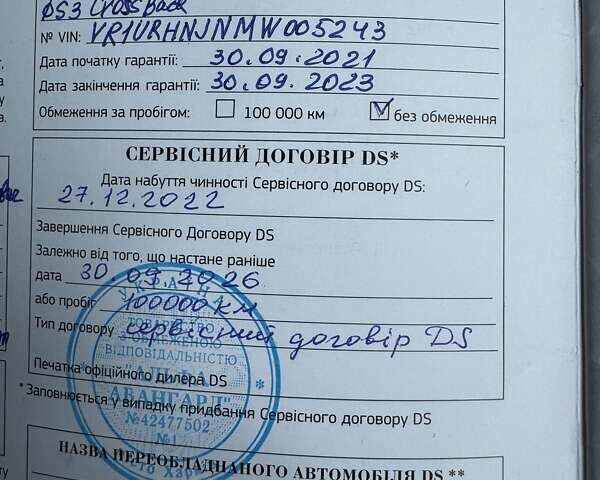 DS3 Crossback
№ VIN: VR1URHNJNMW005243
Дата початку гарантії: 30.09.2021
Дата закінчення гарантії: 30.09.2023
Обмеження за пробігом: 100 000 км без обмеження
СЕРВІСНИЙ ДОГОВІР DS*
Дата набуття чинності Сервісного договору DS:
27.12.2022
Завершення Сервісного Договору DS
Залежно від того, що настане раніше
дата 30.09.2026
або пробіг 100000 км
Тип договору сервісний договір DS
З ОБМЕЖЕНОЮ
ВІДПОВІДАЛЬНІСТЮ
"АЛЬФА
АВАНГАРД"
№42477502
№1
Печатка офіційного дилера DS
* Заповнюється у випадку придбання Сервісного договору DS
НАЗВА ПЕРЕОБЛАДНАНОГО АВТОМОБІЛЯ DS **